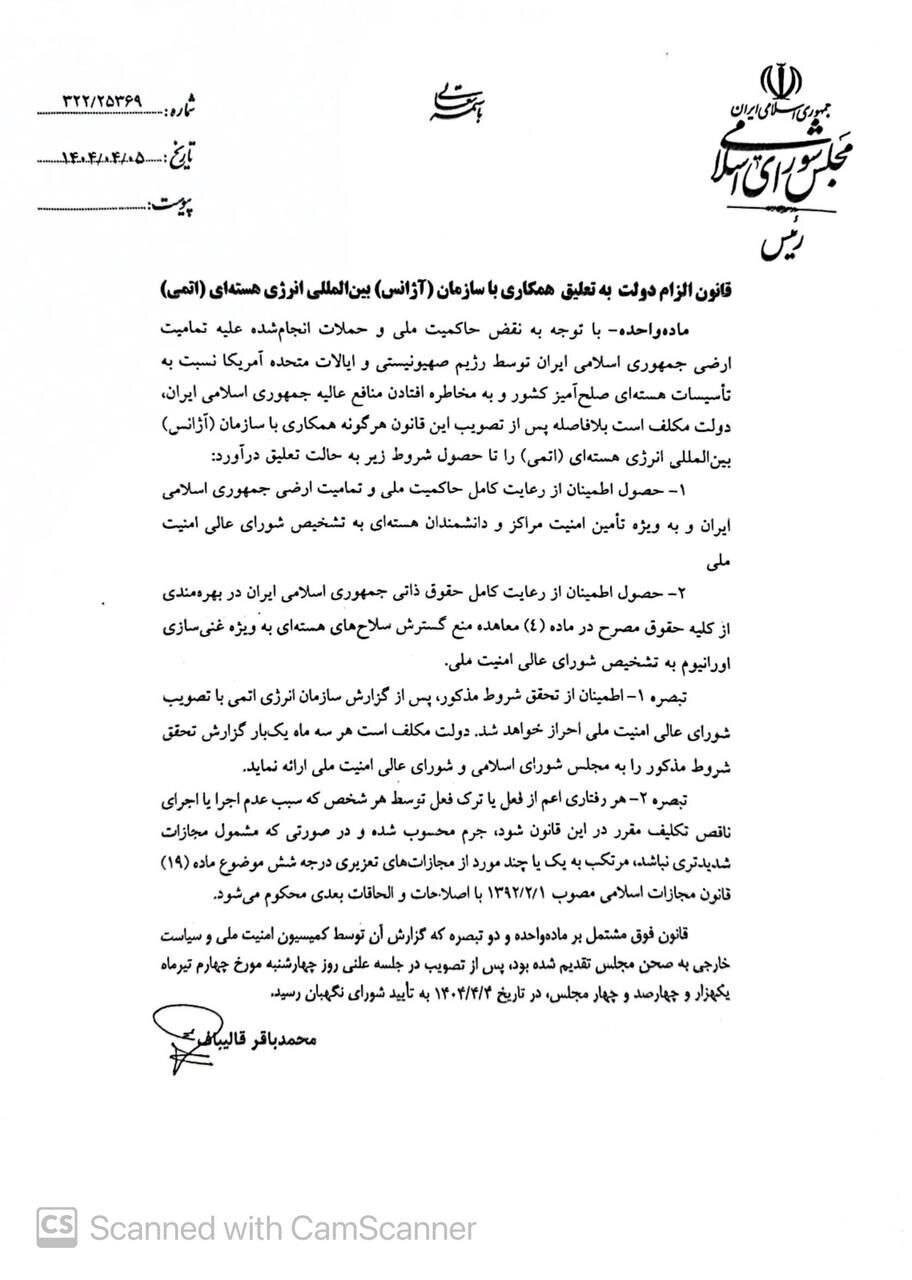 باسمه تعالی
جمهوری اسلامی ایران
مجلس شورای اسلامی
رئیس
شماره: ۳۲۲/۲۵۳۶۹
تاریخ: ۱۴۰۴/۰۴/۰۵
پیوست:
قانون الزام دولت به تعلیق همکاری با سازمان (آژانس) بین‌المللی انرژی هسته‌ای (اتمی)
ماده‌واحده- با توجه به نقض حاکمیت ملی و حملات انجام‌شده علیه تمامیت
ارضی جمهوری اسلامی ایران توسط رژیم صهیونیستی و ایالات متحده آمریکا نسبت به
تأسیسات هسته‌ای صلح‌آمیز کشور و به مخاطره افتادن منافع عالیه جمهوری اسلامی ایران،
دولت مکلف است بلافاصله پس از تصویب این قانون هرگونه همکاری با سازمان (آژانس)
بین‌المللی انرژی هسته‌ای (اتمی) را تا حصول شروط زیر به حالت تعلیق درآورد:
۱- حصول اطمینان از رعایت کامل حاکمیت ملی و تمامیت ارضی جمهوری اسلامی
ایران و به ویژه تأمین امنیت مراکز و دانشمندان هسته‌ای به تشخیص شورای عالی امنیت
ملی
۲- حصول اطمینان از رعایت کامل حقوق ذاتی جمهوری اسلامی ایران در بهره‌مندی
از کلیه حقوق مصرح در ماده (٤) معاهده منع گسترش سلاح‌های هسته‌ای به ویژه غنی‌سازی
اورانیوم به تشخیص شورای عالی امنیت ملی.
تبصره ۱- اطمینان از تحقق شروط مذکور، پس از گزارش سازمان انرژی اتمی با تصویب
شورای عالی امنیت ملی احراز خواهد شد. دولت مکلف است هر سه ماه یک‌بار گزارش تحقق
شروط مذکور را به مجلس شورای اسلامی و شورای عالی امنیت ملی ارائه نماید.
تبصره ۲- هر رفتاری اعم از فعل یا ترک فعل توسط هر شخص که سبب عدم اجرا یا اجرای
ناقص تکلیف مقرر در این قانون شود، جرم محسوب شده و در صورتی که مشمول مجازات
شدیدتری نباشد، مرتکب به یک یا چند مورد از مجازات‌های تعزیری درجه شش موضوع ماده (۱۹)
قانون مجازات اسلامی مصوب ۱۳۹۲/۲/۱ با اصلاحات و الحاقات بعدی محکوم می‌شود.
قانون فوق مشتمل بر ماده‌واحده و دو تبصره که گزارش آن توسط کمیسیون امنیت ملی و سیاست
خارجی به صحن مجلس تقدیم شده بود، پس از تصویب در جلسه علنی روز چهارشنبه مورخ چهارم تیرماه
یکهزار و چهارصد و چهار مجلس، در تاریخ ۱۴۰۴/۴/۴ به تأیید شورای نگهبان رسید.
محمدباقر قالیباف
CS Scanned with CamScanner